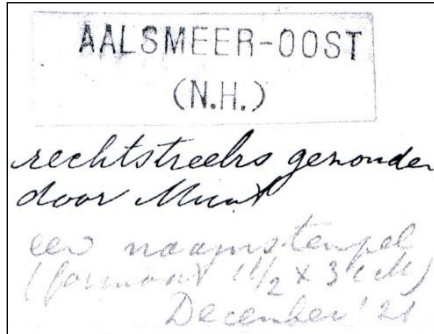 AALSMEER-OOST
(N.H.)
rechtstreeks gezonden
door Munt
een naamstempel
(formaat 1 1/2 x 3 cM)
December '21